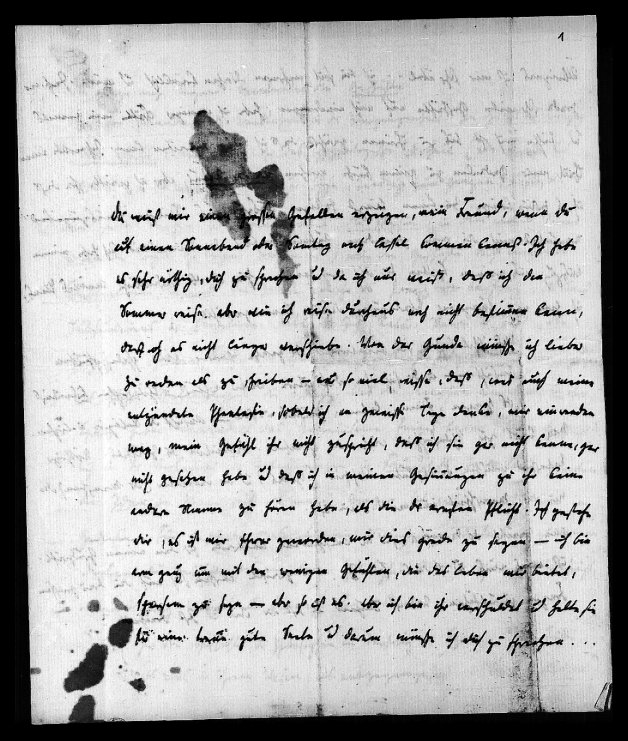 1
Du mußt mir einen großen Gefallen erzeigen, mein Freund, wenn du
auf einen Sonnabend oder Sonntag nach Cassel kommen kannst. Ich habe
es sehr nöthig, dich zu sprechen u da ich nur weiß, daß ich den
Sommer reise, aber wie ich reise durchaus noch nicht bestimmen kann,
daß ich es nicht länger verschiebe. Von der Gunda müßte ich lieber
zu reden als zu schreiben – nur so viel wisse, daß, was auch meine
entzündete Phantasie, sobald ich an gewisse Tage denke, mir einwenden
mag, mein Gefühl ihr nicht zuspricht, daß ich sie gar nicht kenne, gar
nicht gesehen habe u daß ich in meinen Gesinnungen zu ihr keine
andere Stimme zu hören habe, als die der ersten Pflicht. Ich gestehe
dir, es ist mir schwer geworden, mir dies grade zu sagen – ich bin
arm genug um mit den wenigen Gefühlen, die das Leben mir bietet,
sparsam zu seyn – aber so ist es. Aber ich bin ihr verschuldet u halte sie
für eine gute Seele u darum müßte ich dich zu sprechen . . .